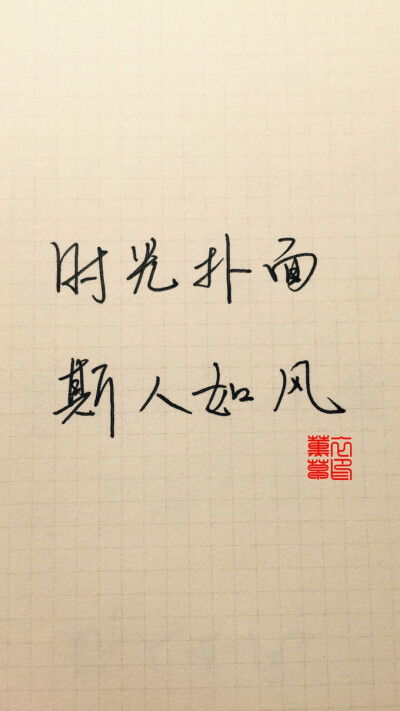 时光扑面
斯人如风